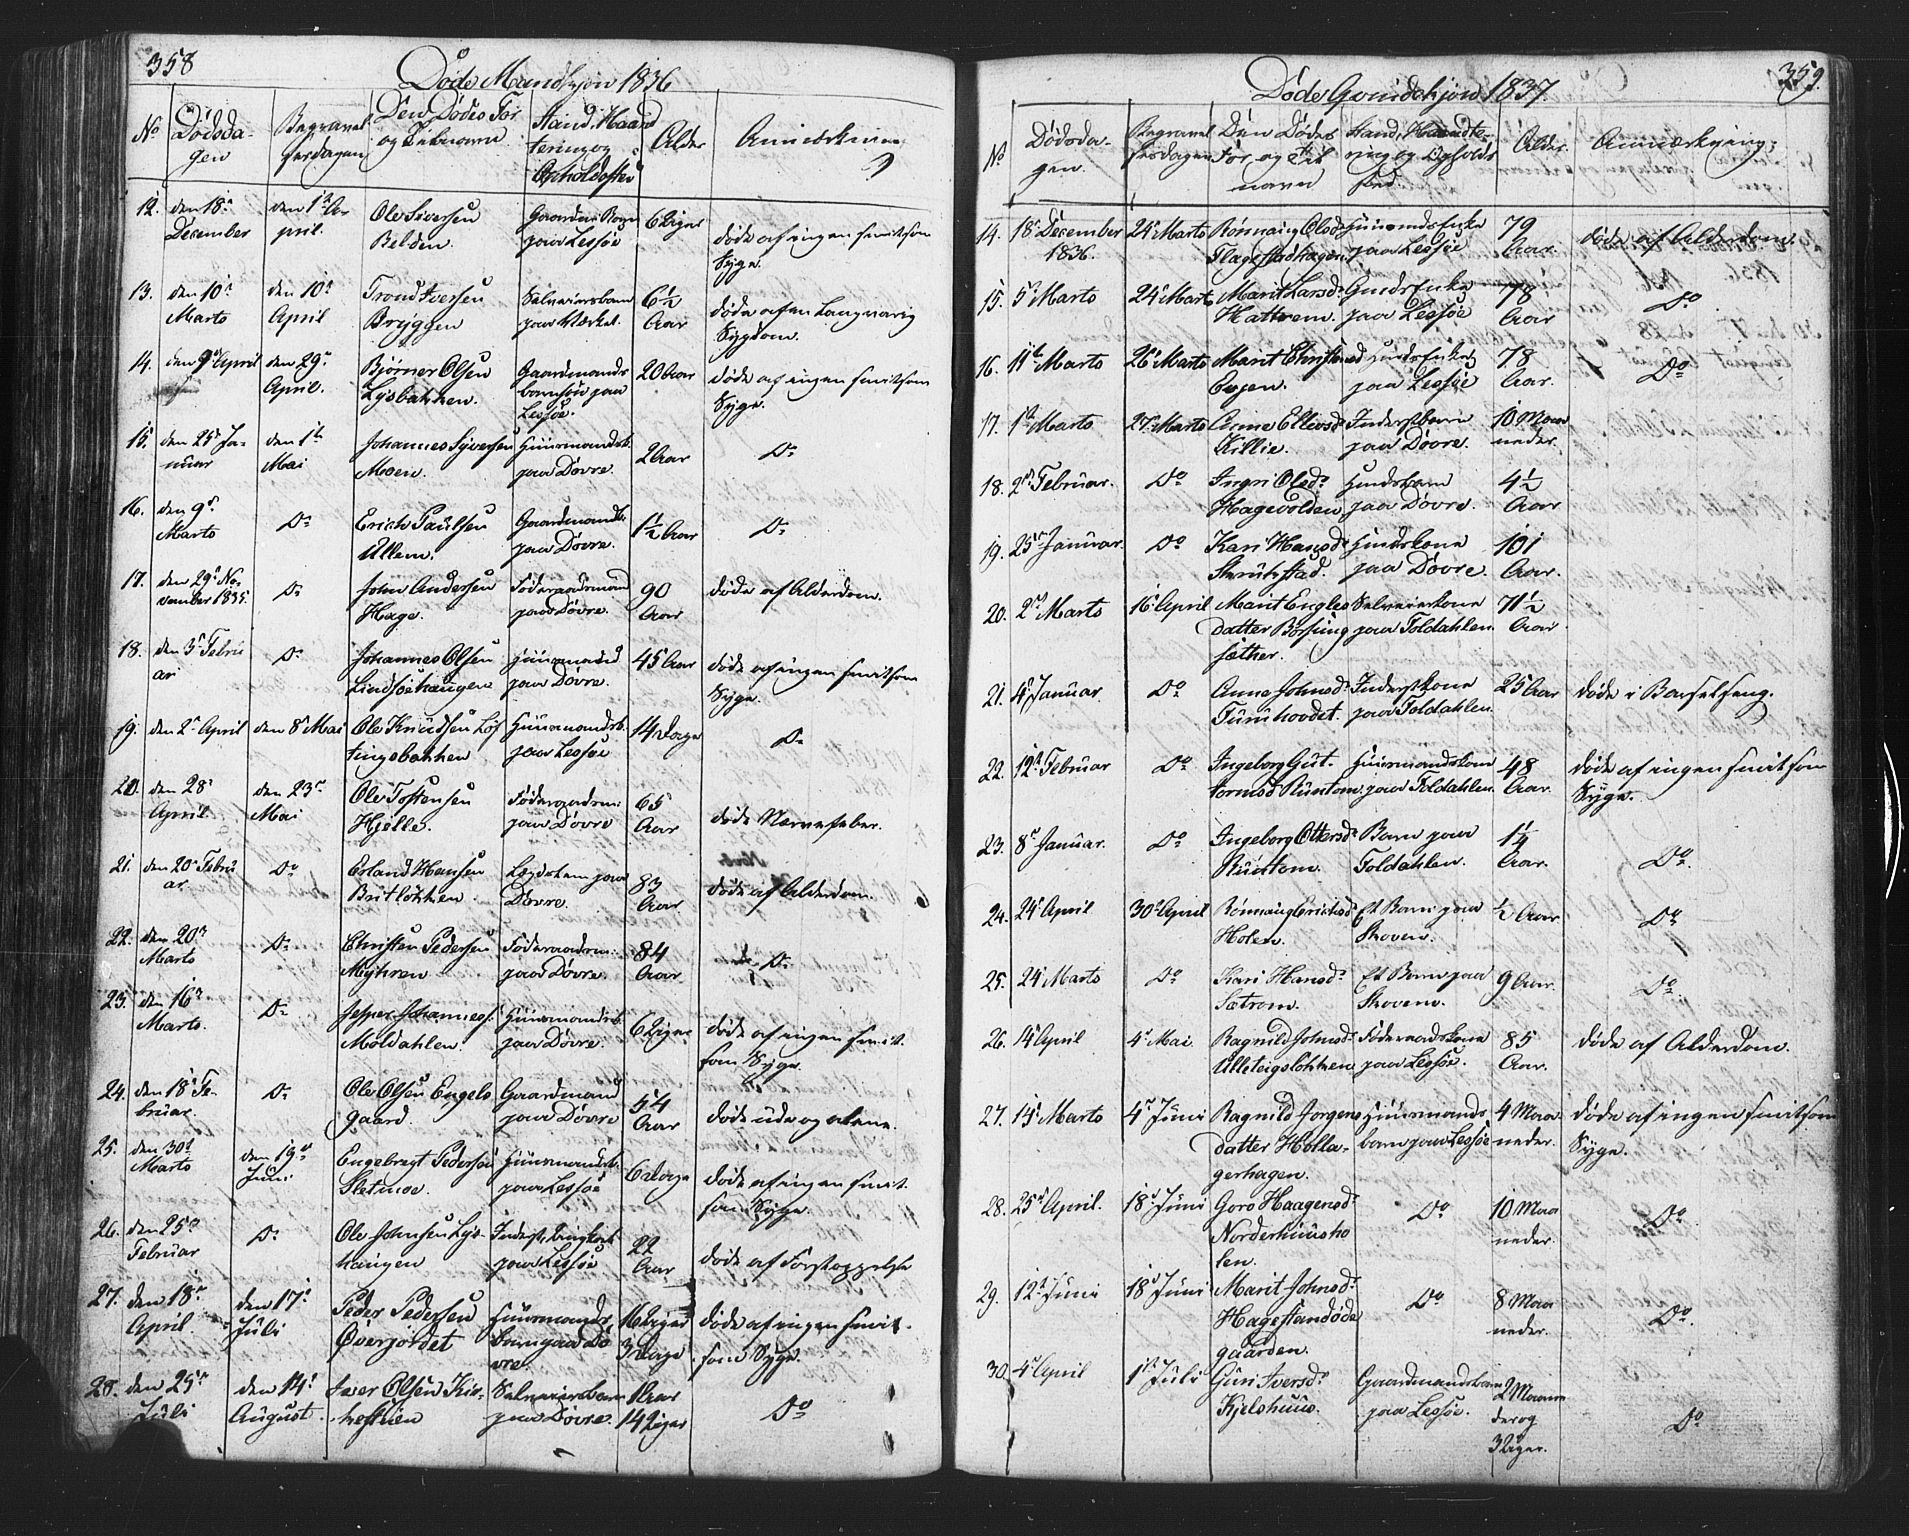 358
Døde Mandkjøn 1836
No
Dødsda-
gen
Begravel
sesdagen
Den Dødes For
og Tilnavn
Stand, Haand
tering og
Opholdssted
Alder
Anmærkning
12. den 18de December
den 1ste April
Ole Siversen
paa Lessøe
6 Uger
døde af ingen smitsom
Syge.
13. den 10de Marts
den 10de April
Trond Iversen
Bryggen
Selveiersbarn
paa Værket.
6½ Aar
døde af en Langvarig
Sygdom.
14. den 9de April
den 29de April.
Bjørner Olsen
Lysbakken.
Gaardmands
barnsøn paa
Lessøe.
20 Aar
døde af ingen smitsom
Syge.
15. den 25de Januar
den 1ste Mai
Johannes Syversen
Moen.
Huusmandsb.
paa Dovre.
2 Aar
Do
16. den 9de Marts
Do
Erich Paulsen
Ullern.
Gaardmandsb.
paa Dovre.
1½ Aar
Do
17. den 29de November 1835.
Do
John Andersen
Hage.
Føderaadsmand
paa Dovre.
90 Aar
døde af Alderdom.
18. den 3de Februar
Do
Johannes Olsen
Lindsøehaugen
Huusmand
paa Dovre.
45 Aar
døde af ingen smitsom
Syge.
19. den 2den April
den 8de Mai
Ole Knudsen Løf
tingsbakken
Huusmandsb.
paa Lessøe
14 Dage
Do
20. den 28de April
den 23de Mai
Ole Tostensen
Hjelle.
Føderaadsm:
paa Dovre
65 Aar
døde Nervefeber.
21. den 20de Februar
Do
Erland Hansen
Britløkken.
Lægdslem paa
Dovre.
83 Aar
døde af Alderdom.
22. den 20de Marts
Do
Christen Pedersen
Myhren.
Føderaadsm:
paa Dovre.
84 Aar
Do
23. den 16de Marts.
Do
Jesper Johannes:
Moldahlen.
Huusmandsb.
paa Dovre.
6 Uger
døde af ingen smit
som Syge.
24. den 18de Februar.
Do
Ole Olsen Engels
gaard.
Gaardmand
paa Dovre
54 Aar
døde ude og alene.
25. den 30te Marts
den 19de Juni
Engebregt Pedersen
Sletmoe.
Huusmandsb.
paa Lessøe
6 Dage
døde af ingen smit
som Syge.
26. den 25de Februar
Do
Ole Johnsen Lys-
haugen
paa Lessøe
22 Aar
døde af Forstoppelse
27. den 18de April.
den 17de Juli
Peder Pedersen
Øverjordet
Huusmands
barn paa Do
vre.
16 Uger
3 Dage
døde af ingen smit-
som Syge.
28. den 25de Juli
den 14de August.
Iver Olsen
Selveiersbarn
paa Dovre.
1 Aar
14 Uger
Do
359.
Døde Qvindekjøn 1837
No
Dødsda-
gen.
Begravel
sesdagen
Den Dødes
For og Til
navn
Stand, Haandte-
ring og Opholds
sted.
Alder.
Anmærkning;
14. 18de December 1836.
24de Marts
Rønnaug Olsd.
Flagstadhagen
Huusmdsenke
paa Lessøe
79 Aar.
døde af Alderdom.
15. 5te Marts
24de Marts
Marit Larsd.
Hattrem.
paa Lessøe
78 Aar
Do
16. 11te Marts
26de Marts
Marit Christensd
paa Lessøe
78 Aar.
Do
17. 1ste Marts
27de Marts
Anne Ellevsd.
Killie.
Inderstbarn
paa Dovre.
10 Maa
neder.
18. 2den Februar.
Do
Ingri Olsd.
Hagevolden
Huusbarn
paa Dovre.
4½ Aar
19. 25de Januar.
Do
Kari Hansd.
paa Dovre.
101 Aar.
20. 2den Marts
16de April
Marit Engles
datter Børsung
sæther.
Selveierkone
paa Foldahlen.
71½ Aar
21. 4de Januar
Do
Anne Johnsd.
Furuhovdet.
Inderstkone
paa Foldahlen.
25 Aar
døde i Barselseng.
22. 12te Februar
Do
Ingeborg Gut-
tormsd
Huusmandskone
paa Foldahlen.
48 Aar.
døde af ingen smitsom
Syge.
23. 8de Januar.
Do
Ingeborg Ottersd.
Barn paa
Foldahlen.
1¼ Aar.
Do
24. 24de April
30te April
Rønnaug Erichsd.
Holen.
Et Barn paa
Skoven.
½ Aar
Do
25. 24de Marts
Do
Kari Hansd.
Sætrom.
Et Barn paa
Skoven.
9 Aar.
Do.
26. 14de April
4de Mai
Ragnild Johnsd.
Ulleteigsløkken
Føderaadskone
paa Lessøe.
85 Aar.
døde af Alderdom.
27. 15de Marts
4de Juni
Ragnild Jørgens
datter Holla-
gerhagen.
Huusmands
barn paa Lessøe
4 Maa
neder.
døde af ingen smitsom
Syge.
28. 25de April.
18de Juni
Goro Haagensd
Norderhuusho
len.
Do
10 Maa
neder.
Do
29. 12te Juni
18de Juni
Marit Johnsd.
Hagestandøde
gaarden.
Do
8 Maa
neder.
Do
30. 4de April
1ste Juli
Guri Iversd.
Kjelshuus.
Gaardmandsbarn
paa Lessøe.
2 Maane
der og
3 Uger.
Do